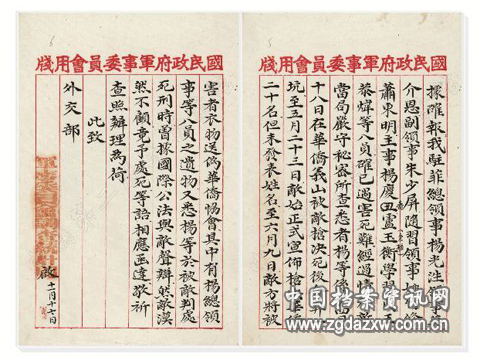 國民政府軍事委員會用牋
據確報我駐菲總領事楊光泩領事
介恩副領事朱少屏隨習領事姚
蕭東明主事楊慶盧玉衡學習員王
恭煒等八員確已遇害死難經過情形
當局嚴守秘密所查悉者楊等係
十八日在華僑義山被敵槍決死後
坑至五月二十三日敵始正式宣佈槍華僑
二十名但未發表姓名至六月九日敵方將被
國民政府軍事委員會用牋
害者衣物送偽華僑協會其中有楊總領
事等八員之遺物又悉楊等於被敵判處
死刑時曾據國際公法與敵聲辯然敵漠
然不顧竟予處死等語相應函達敬祈
查照辦理為荷
此致
外交部
軍事委員會調查統計局啟
十一月十七日
中国档案资讯网
www.zgdazxw.com.cn